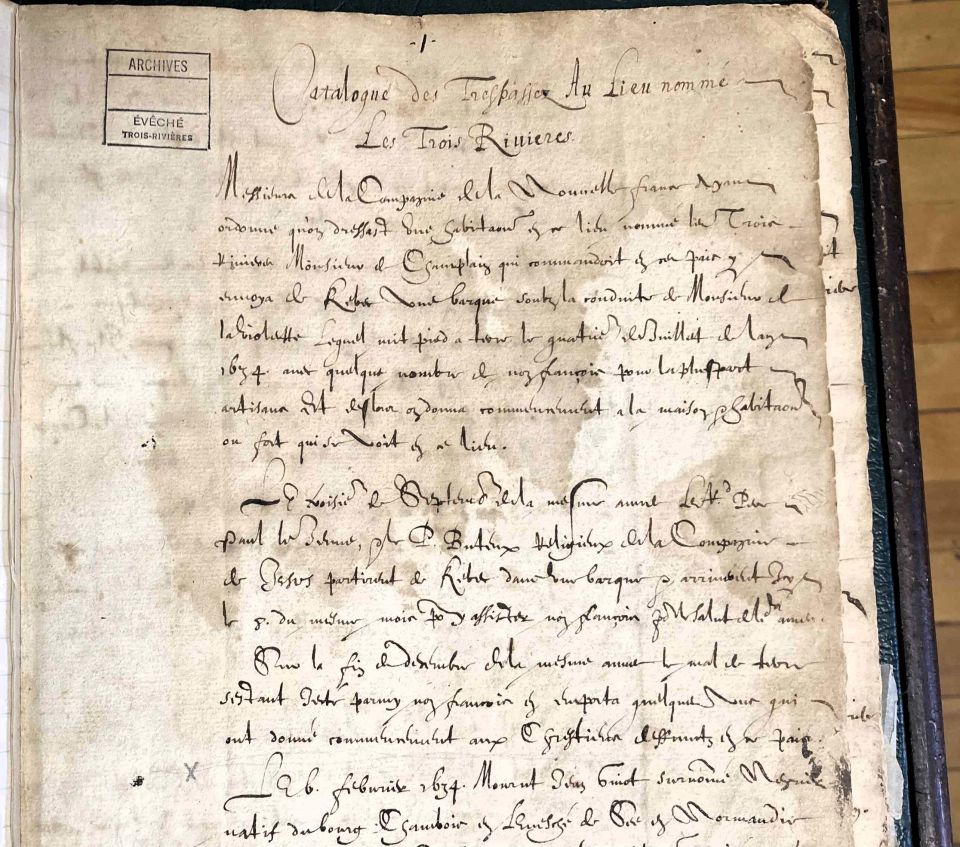 -1-
ARCHIVES
ÉVÊCHÉ
TROIS-RIVIÈRES
Catalogue des Trespassez Au Lieu nommé
Les Trois Rivieres.
Messieurs de la Compagnie de la Nouvelle france Ayans
ordonné qu'on dressast une habitaon en ce lieu nommé les Trois
Rivieres Monsieur de Champlain qui commandoit en ces pais y
envoya de Kébec une barque soubz la conduitte de Monsieur de
laviolette Lequel mit pied a terre le quatrie de Juillet de lan
1634. avec quelque nombre de noz françois pour la pluspart
artisans Et deslors on donna commencement a la maison & habitaon
ou fort qui se voit en ce lieu.
LE troisie de Septemb de la mesme annee Le R. Pere
Paul le Jeune, & le P. Buteux Religieux de la Compagnie
de Jesus partirent de Kébec dans une barque & arriverent Icy
le 8. du mesme mois po y assister noz françois po le salut de le ames.
Sur la fin de decembre de la mesme annee le mal de terre
sestant Jetté parmy noz françois en emporta quelques Uns qui
ont donné commencement aux Chrestiens deffunctz en ce pais.
LE 6. febvrier 1634. Mourut Jean Guiot surnommé
natif du bourg Chamboie en Levesché de Sées en Normandie